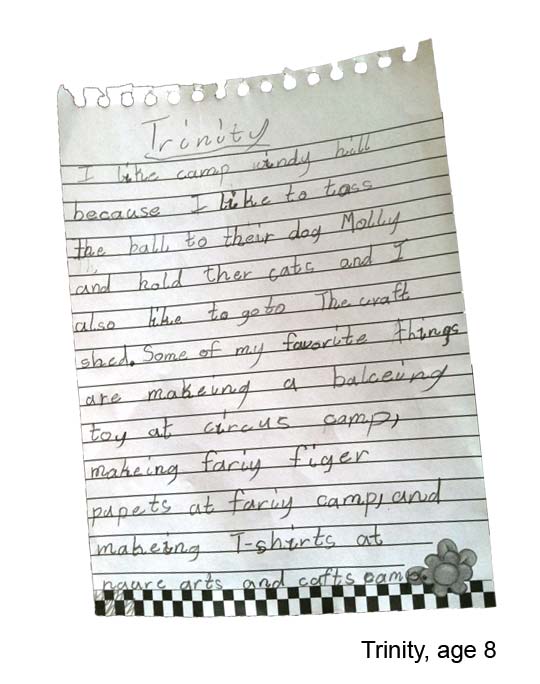 Trinity
I like camp windy hill
because I like to toss
the ball to their dog Molly
and hold ther cats and I
also like to go to The craft
shed. Some of my favorite things
are makeing a balceing
toy at circus camp,
makeing fariy figer
pupets at fariy camp, and
makeing T-shirts at
naure arts and cafts camp.
Trinity, age 8